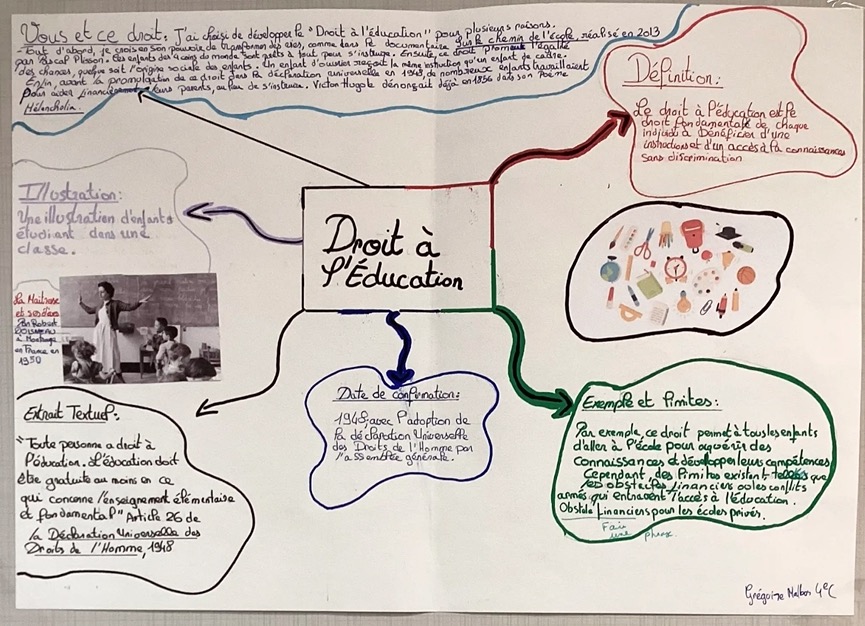 Vous et ce droit: J'ai choisi de développer le "Droit à l'éducation" pour plusieurs raisons.
Tout d'abord, je crois en son pouvoir de transformer des vies, comme dans le documentaire Sur le chemin de l'école, réalisé en 2013
par Pascal Plisson. Les enfants de 4 coins du monde sont prêts à tout pour s'instruire. Ensuite, ce droit promeut l'égalité
des chances, quelque soit l'origine sociale des enfants. Un enfant d'ouvrier reçoit la même instruction qu'un enfant de cadre.
Enfin, avant la promulgation de ce droit dans la déclaration universelle en 1948, de nombreux enfants travaillaient
pour aider financièrement leurs parents, au lieu de s'instruire. Victor Hugo le dénonçait déjà en 1856 dans son Poème
Mélancholia.
Définition:
Le droit à l'éducation est le
droit fondamentale de chaque
individu à bénéficier d'une
instruction et d'un accès à la connaissances
sans discrimination
Illustration:
Une illustration d'enfants
étudiant dans une
classe.
Droit à
l'Éducation
La Maitresse
Par Robert
DOISNEAU
à Montrouge
en France en
1950
Extrait Textuel:
"Toute personne a droit à
l'éducation. L'éducation doit
être gratuite au moins en ce
qui concerne l'enseignement élémentaire
et fondamental" Article 26 de
la Déclaration Universelle des
Droits de l'Homme, 1948
Date de confirmation:
1948, avec l'adoption de
la déclaration Universelle
des Droits de l'Homme par
l'assemblée générale.
Exemple et limites:
Par exemple, ce droit permet à tous les enfants
d'aller à l'école pour aquérir des
connaissances et développer leurs compétences
Cependant des limites existent, telles que
les obstacles financiers ou les conflits
armés qui entravent l'accès à l'éducation.
Obstacle financiers pour les écoles privés.
Faire
une phrase.
Grégoire Malbos 4eC